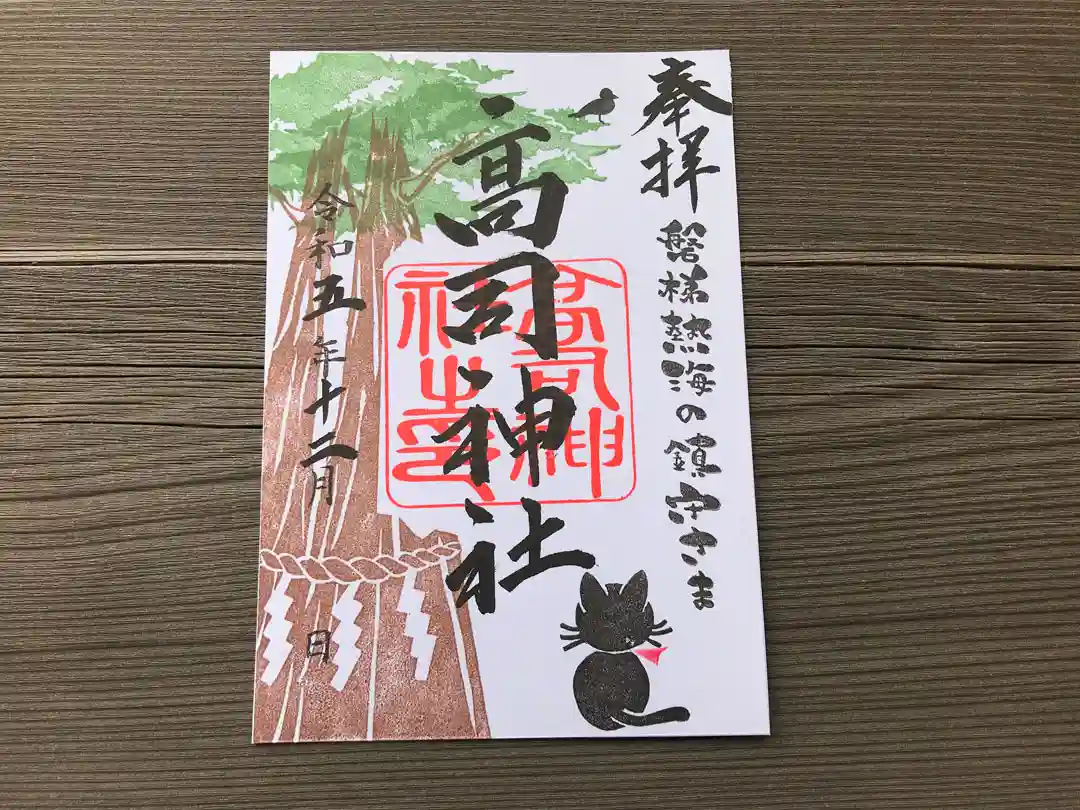 奉拝
磐梯熱海の鎮守さま
高司神社
高司神
社之印
令和五年十二月　日